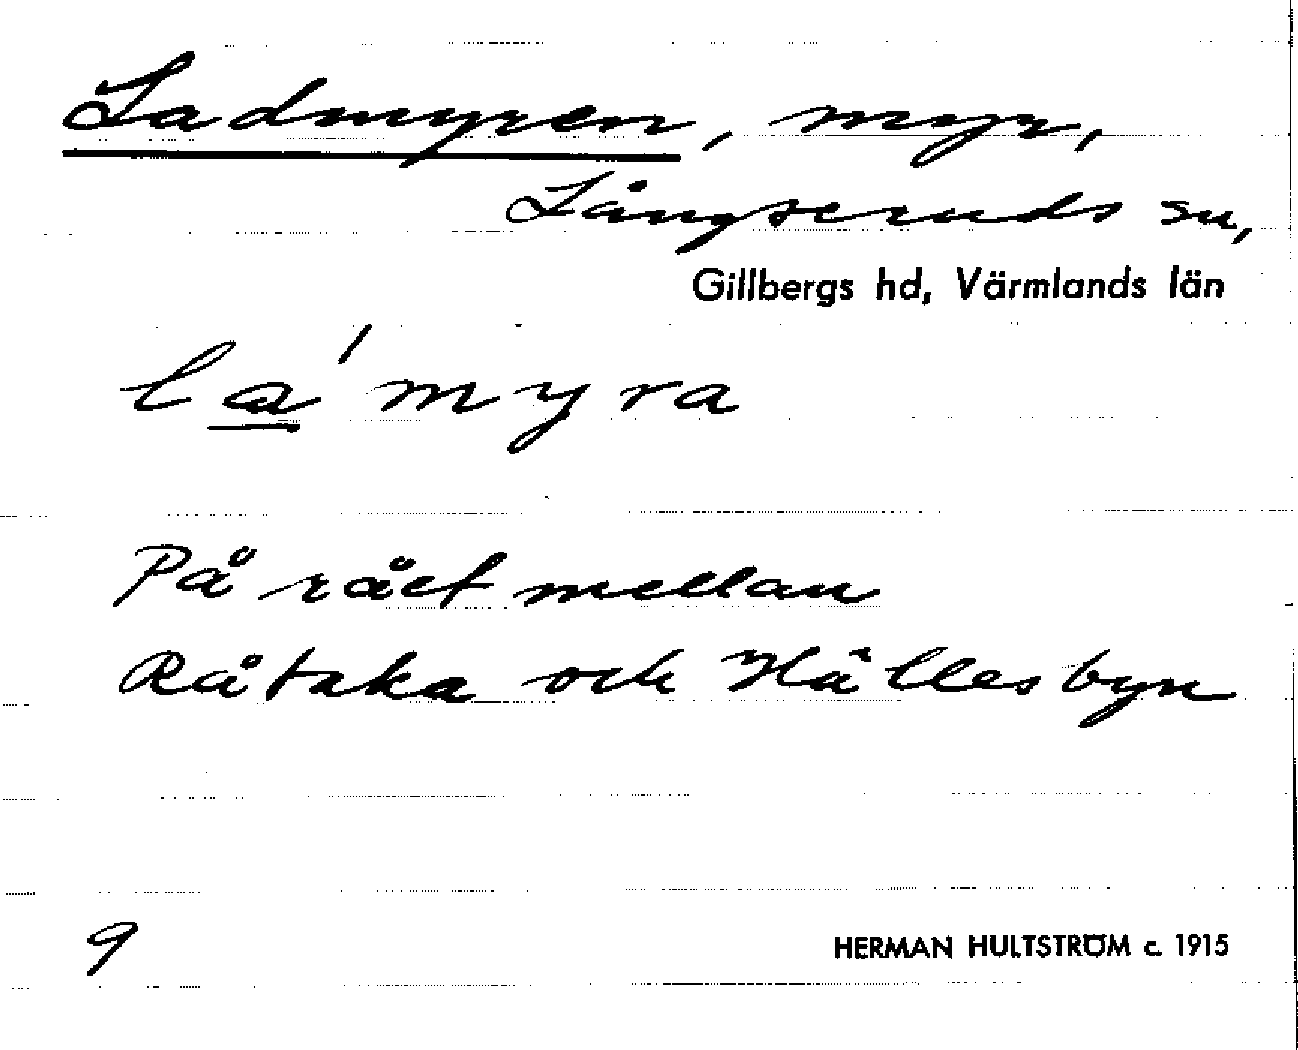 Ladmyren, myr,
Långseruds sn,
Gillbergs hd, Värmlands län
la ́ myra
På rået mellan
Råtaka och Hällesbyn
9
HERMAN HULTSTRÖM c. 1915